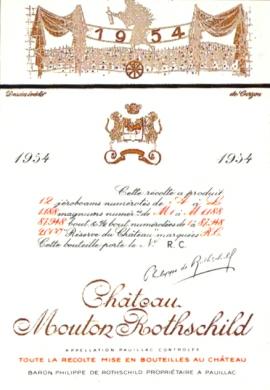 1954
Dessin inédit de Carzou
1954 1954
Cette récolte a produit
12 jéroboams numérotés de A à L
1188 magnums numér. de M1 à M1188
bout. & ½ bout. numérotées de 1 à
2000 "Réserve du Château" marquées R.C.
Cette bouteille porte le Nº R.C.
Philippe de Rothschild
Château
Mouton Rothschild
APPELLATION PAUILLAC CONTROLÉE
TOUTE LA RÉCOLTE MISE EN BOUTEILLES AU CHÂTEAU
BARON PHILIPPE DE ROTHSCHILD PROPRIÉTAIRE A PAUILLAC